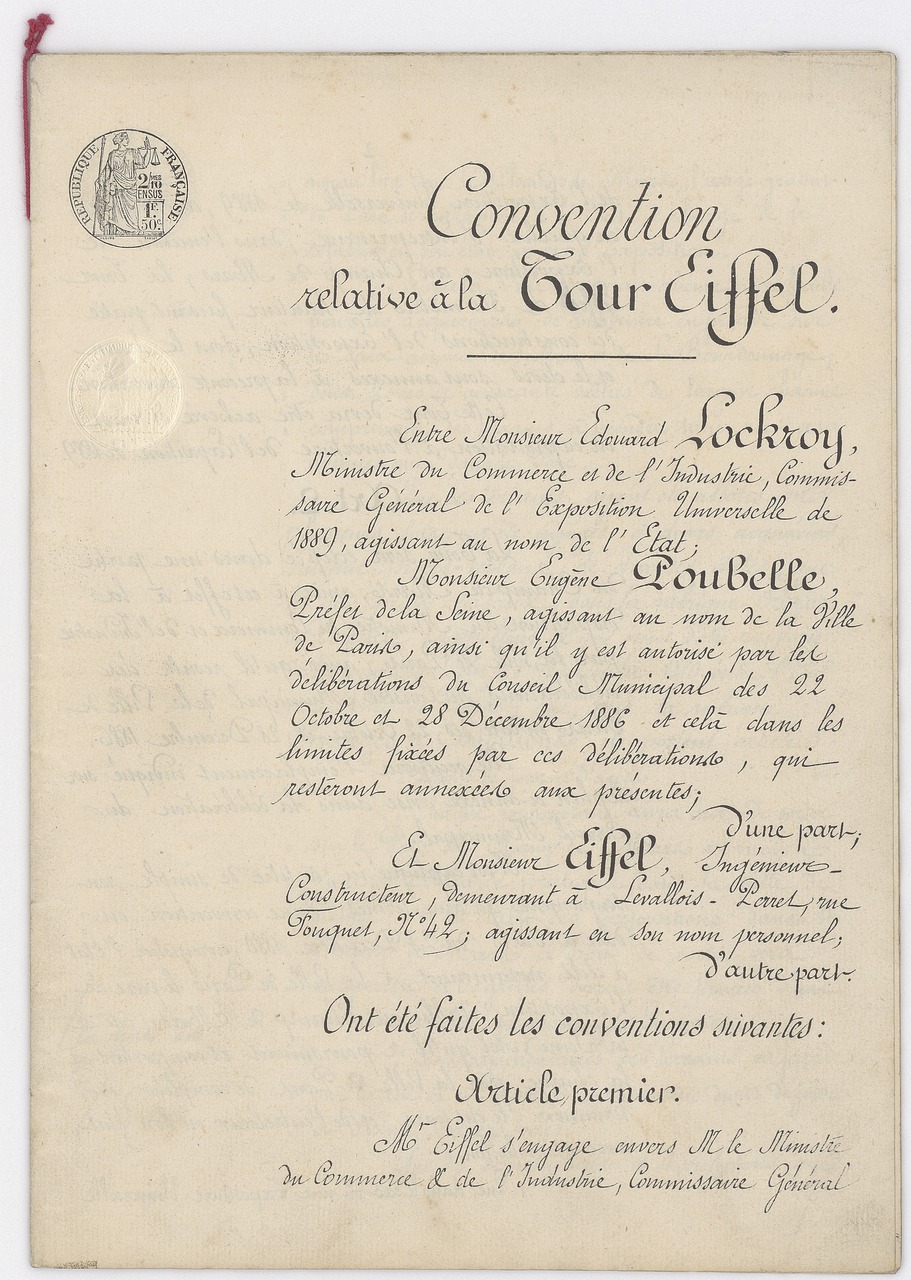 RÉPUBLIQUE FRANÇAISE
2/10 EN SUS
1F
50c
Convention
relative à la Tour Eiffel.
Entre Monsieur Edouard Lockroy,
Ministre du Commerce et de l'Industrie, Commis-
saire Général de l'Exposition Universelle de
1889, agissant au nom de l'Etat;
Monsieur Eugène Poubelle,
Préfet de la Seine, agissant au nom de la Ville
de Paris, ainsi qu'il y est autorisé par les
délibérations du Conseil Municipal des 22
Octobre et 28 Décembre 1886 et celà dans les
limites fixées par ces délibérations, qui
resteront annexées aux présentes;
d'une part;
Et Monsieur Eiffel, Ingénieur-
Constructeur, demeurant à Levallois-Perret, rue
Fouquet, N° 42; agissant en son nom personnel;
d'autre part.
Ont été faites les conventions suivantes:
Article premier.
Mr Eiffel s'engage envers M le Ministre
du Commerce & de l'Industrie, Commissaire Général